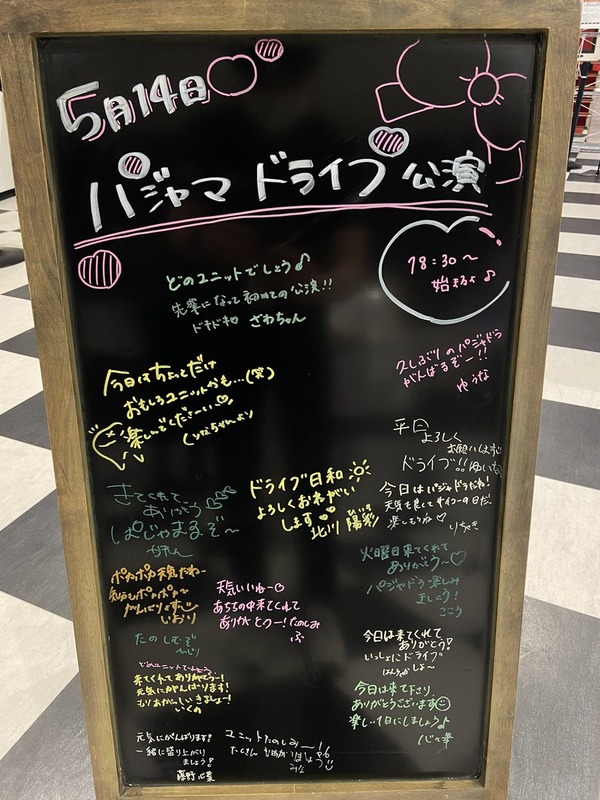 5月14日
パジャマドライブ公演
18:30~
始まるよ♪
どのユニットでしょう♪
先輩になって初めての公演!!
ドキドキ ざわちゃん
久しぶりのパジャドラ
がんばるぞー!!
ゆうな
今日はちょっとだけ
おもしろユニットかも...(笑)
楽しんでくださーい♡
平日
よろしく
お願いします
ドライブ!!
ドライブ日和
よろしくおねがい
します
北川 陽彩
今日はパジャドラだね!
天気も良くてサイコーの日だ
楽しもうね♡
きてくれて
ありがとう
ぱじゃまるぞ~
かれん
火曜日来てくれて
ありがとう~♡
パジャドラ楽しみ
ましょう!
こころ
ポカポカ天気だね~
気分もポカポカ~
がんばりまーす
いおり
天気いいね~
あちぢの中来てくれて
ありがとうー!たのしみ
たのしむぞ
今日は来てくれて
ありがとう!
いっしょにドライブ
しよ~
どのユニットでしょう
来てくれてありがとうー!
元気にがんばります!
もりあがっていきましょー!
いくの
今日は来て下さり
ありがとうございます
楽しい1日にしましょう♪
心々華
元気にがんばります!
一緒に盛り上がり
ましょう!
藤野 心葉
ユニットたのしみー!
たくさん